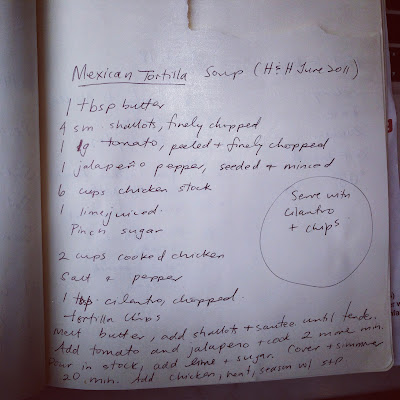 Mexican Tortilla Soup (H&H June 2011)
1 tbsp butter
4 sm shallots, finely chopped
1 lg tomato, peeled + finely chopped
1 jalapeño pepper, seeded + minced
6 cups chicken stock
1 lime, juiced.
Pinch sugar
2 cups cooked chicken
Salt + pepper
1 tbsp cilantro, chopped.
tortilla chips
Serve with
cilantro
+ chips
Melt butter, add shallots + sauteo until tender.
Add tomato and jalapeno + cook 2 more min.
Pour in stock, add lime + sugar. Cover + simmer
20 min. Add chicken, heat, season w/ s+p.